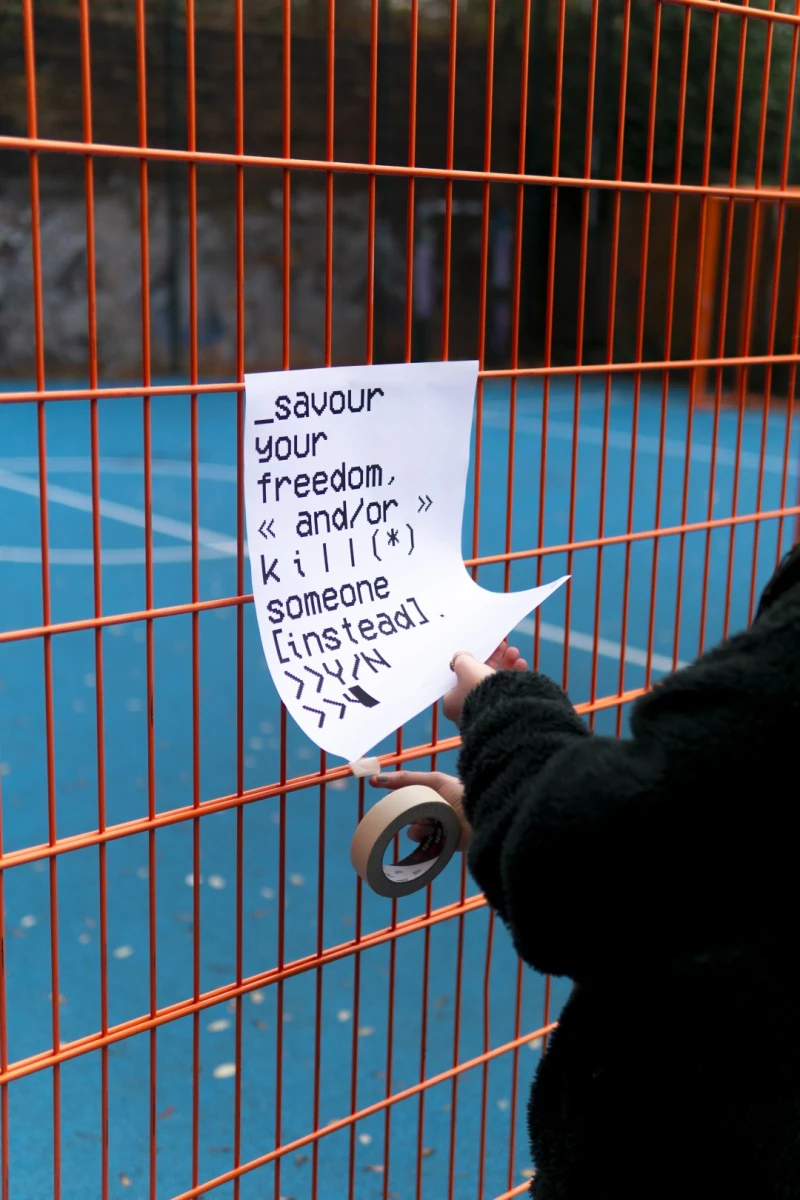 _savour
your
freedom,
« and/or »
kill(*)
someone
[instead].
>>Y/N
>>Y